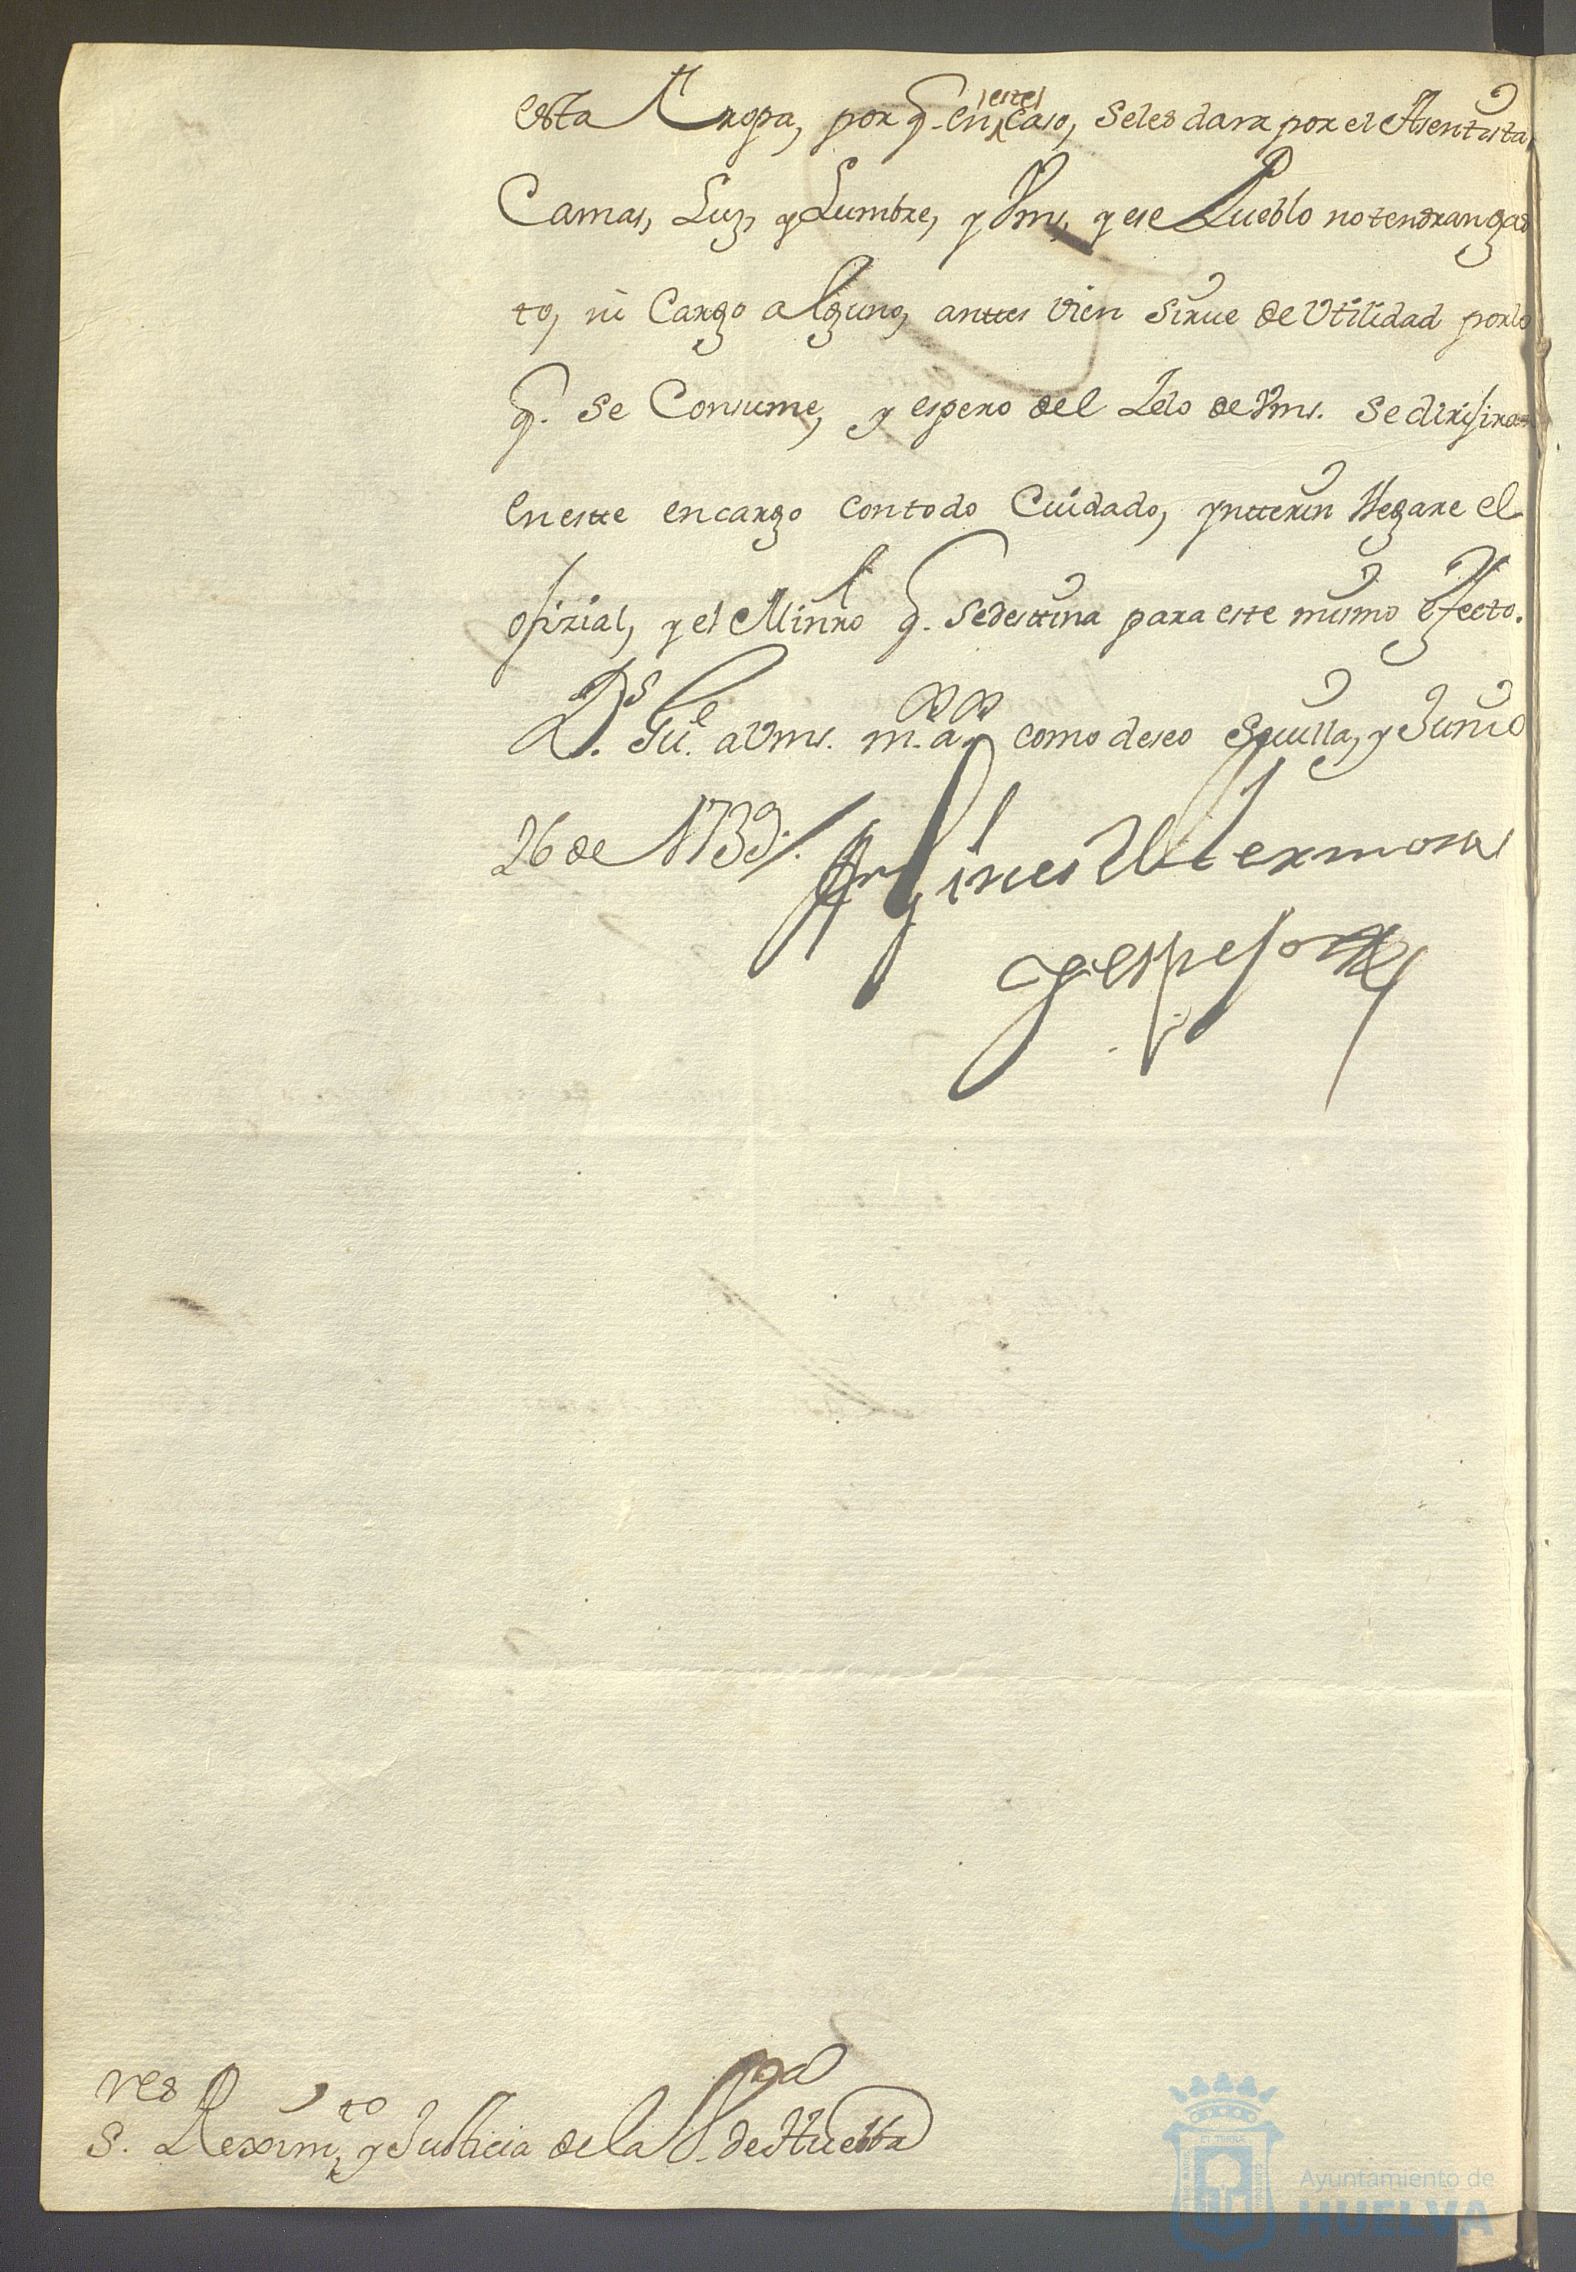 esta Tropa, por q. en este caso, Seles dara por el Asentista,
Camas, Luz, y Lumbre, y Vms. y ese Pueblo no tendran gas
to, ni Cargo alguno, antes vien Sirue de Vtilidad por lo
q. Se Consume, y espero del Zelo de Vms. Se dirijiran
en este encargo con todo Cuidado, ynterin llegare el
ofizial, y el Minro q. Se destina para este mismo efecto.
Ds. Gue. a Vms. ms. as. como deseo Seuilla, y Junio
26 de 1733.
Gines de Hermosa
y espejo
Sres. Reximto. y Justicia de la Va. de Huelba
Ayuntamiento de
HUELVA